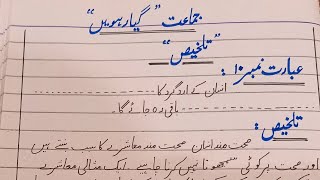 جماعت "گیارہویں"
"تلخیص"
عبارت نمبر ۱۰:
انسان کے اردگرد کا
باقی رہ جائے گا۔
تلخیص:
صحت مند انسان صحت مند معاشرے کا سبب بنتے ہیں
اور صحت پر کوئی سمجھوتا نہیں کرنا چاہیے۔ ایک مثالی معاشرے